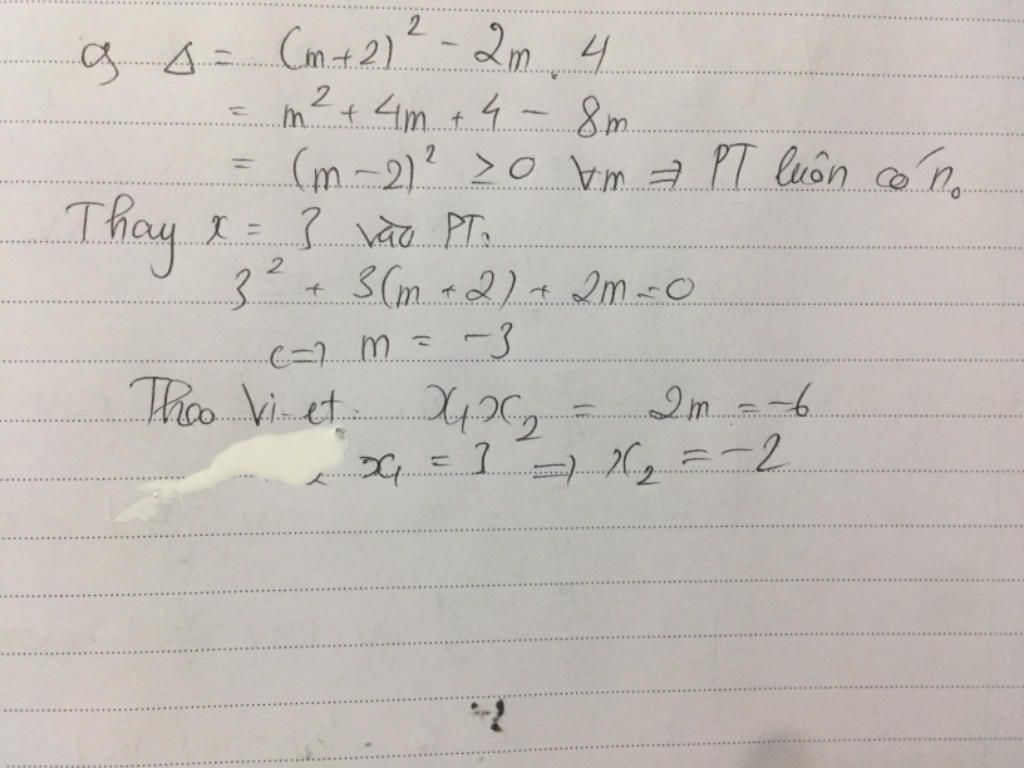 g Δ = (m+2)² - 2m . 4
= m² + 4m + 4 - 8m
= (m-2)² ≥ 0 ∀m ⇒ PT luôn có n₀
Thay x = 3 vào PT:
3² + 3(m+2) + 2m = 0
<=> m = -3
Theo Vi-et: x₁x₂ = 2m = -6
x₁ = 3 => x₂ = -2